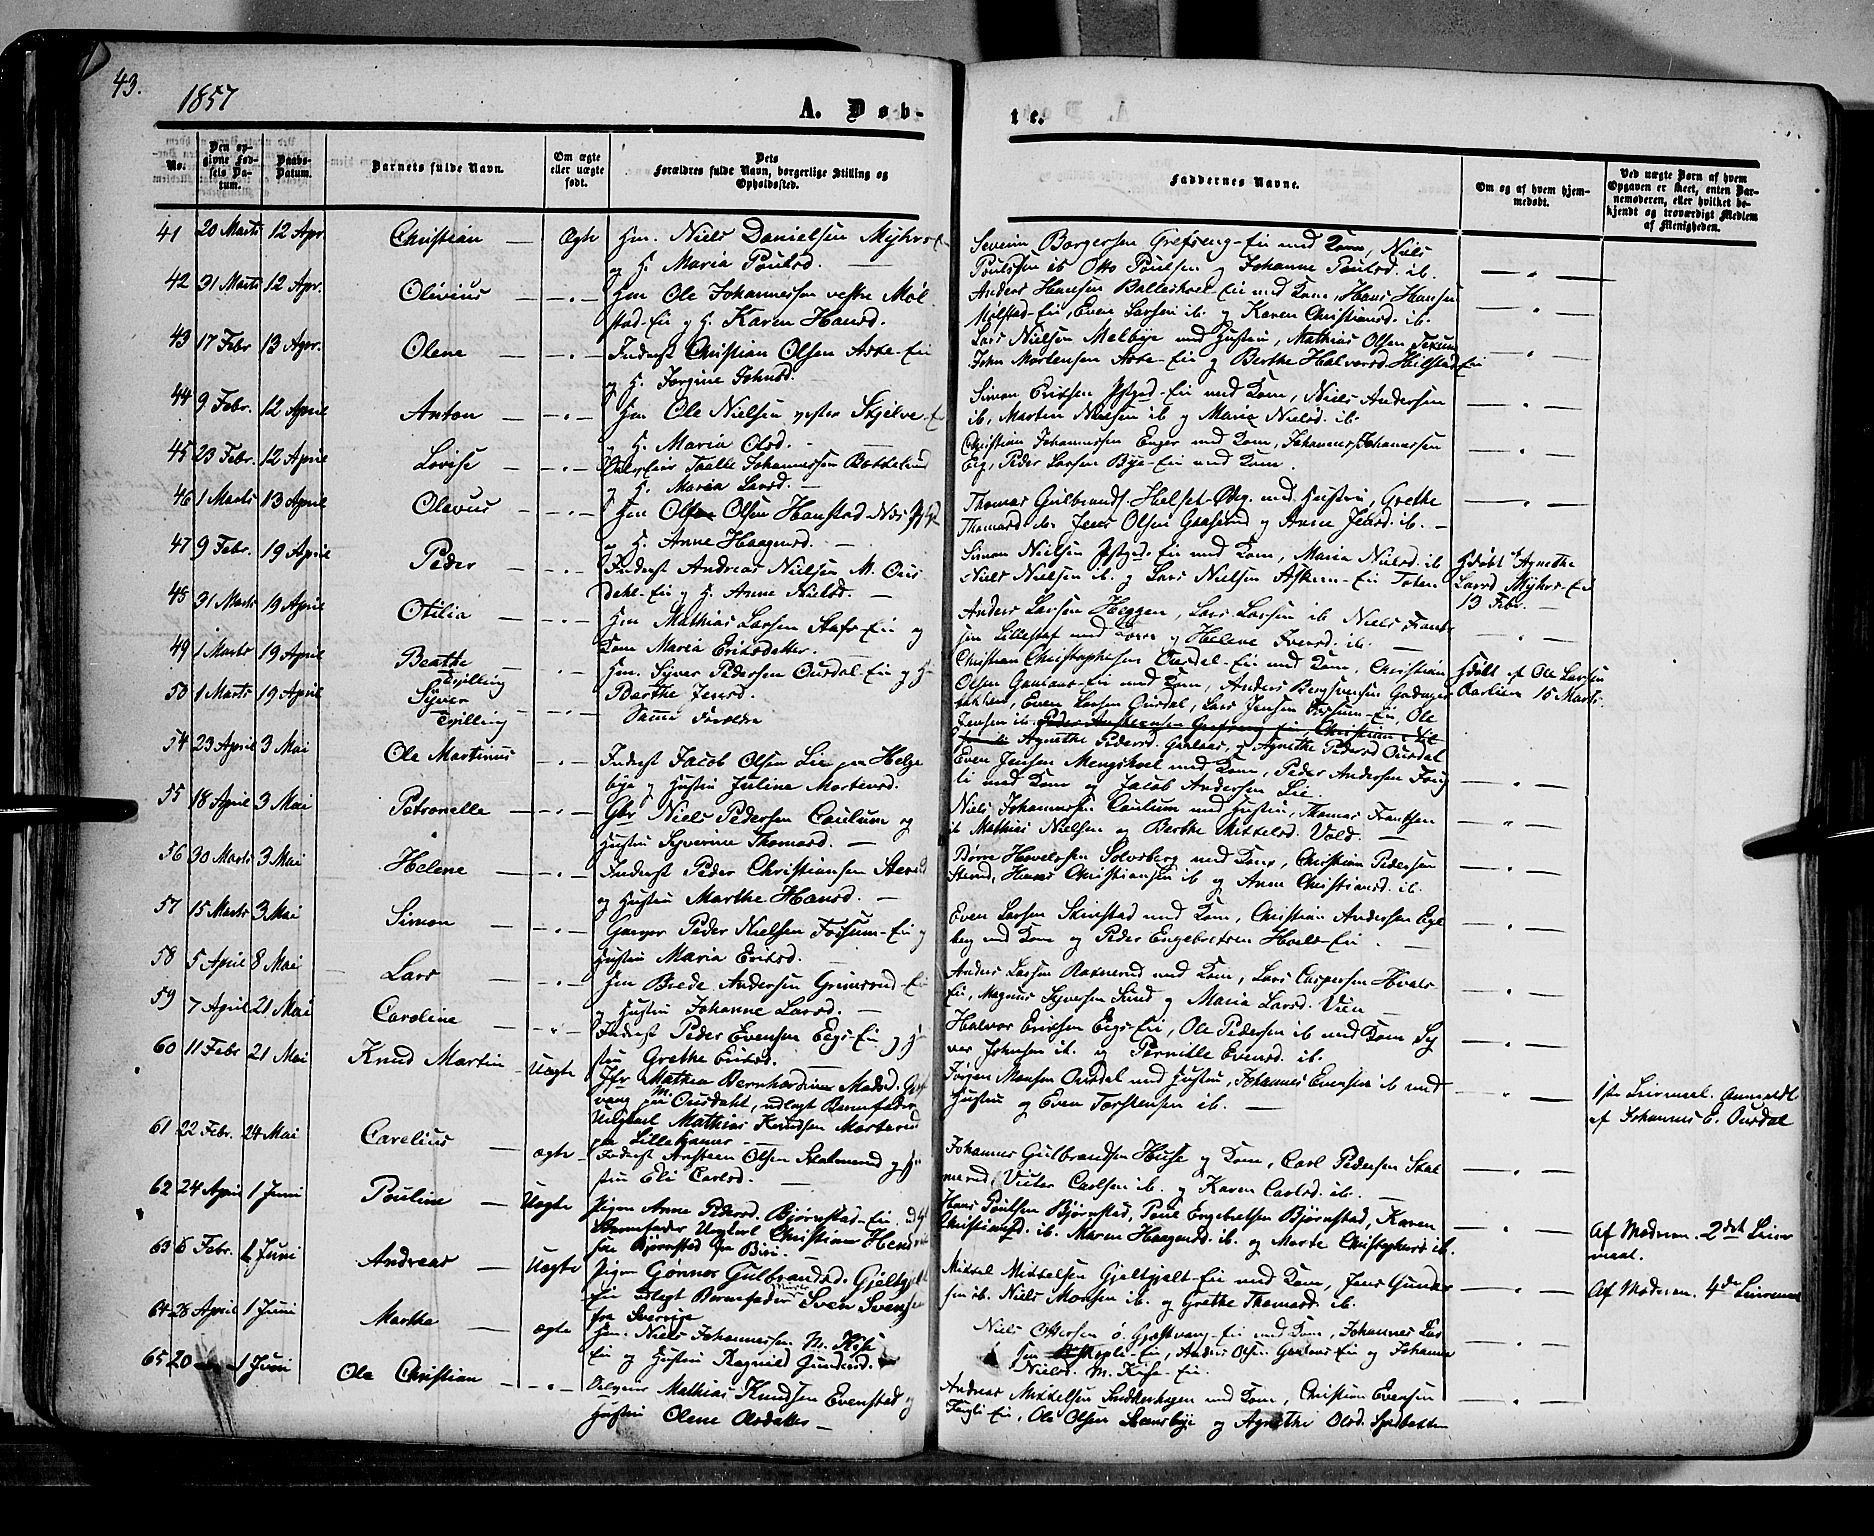 43.
1857
A. Døb-
te.
No.
Den op-
givne Fød-
sels Da-
tum.
Daabs-
Datum.
Barnets fulde Navn.
Om ægte
eller uægte
født.
Dets
Forældres fulde Navn, borgerlige Stilling og
Opholdssted.
Faddernes Navne.
Om og af hvem hjem-
medøbt.
Ved uægte Børn af hvem
Opgaven er skeet, enten Bar-
nemoderen, eller hvilket be-
kjendt og troværdigt Medlem
af Menigheden.
41 20 Marts 12 Apr. Christian Ægte Hm. Niels Danielsen Myhrs-Ei
og H. Maria Poulsd.
Severin Borgersen Grefseng-Ei med Kone, Niels
Poulsen ib Otto Poulsen og Johanne Poulsd. ib.
42 31 Marts 12 Apr. Olivius Hm Ole Johannessen vestre Møl
stad-Ei og H. Karen Hansd.
Anders Hansen Balleshol-Ei med Kone, Hans Hansen
Mølstad-Ei, Even Larsen ib. og Karen Christiansd. ib.
43 17 Febr 13 Apr. Olene Inderst Christian Olsen Aske-Ei
og H. Jorgine Johnsd.
Lars Nielsen Melbye med Hustru, Mathias Olsen
John Mortensen Aske-Ei og Berthe Halvorsd. Hilstad-Ei
44 9 Febr. 12 April Anton Hm Ole Nielsen vestre Skjelve-Ei
og H. Maria Olsd.
Simon Eriksen Pstgrd-Ei med Kone, Niels Andersen
ib, Martin Nielsen ib og Maria Nielsd. ib.
45 23 Febr. 12 April Lovise Taalle Johannessen
og H. Maria Larsd.
Christian Johannessen Enger med Kone, Johannes Johannessen
Eeg, Peder Larsen Bye-Ei med Kone.
46 1 Marts 13 April Olavus Hm Olsen Hanstad
og H. Anne Haagensd.
Thomas Gulbrands. Helset-Øvg. med Hustru, Grethe
Thomasd. do. Jens Olsen Gaasund og Anne Jensd. ib.
47 9 Febr. 19 April Peder Inderst Andreas Nielsen M. Ous
dahl-Ei og H. Anne Nielsd.
Simon Nielsen Pstgrd-Ei med Kone, Maria Nielsd. ib
Niels Nielsen ib. og Lars Nielsen Askern-Ei Toten
Hjdøbt af Agnethe
Larsd Myhrs-Ei
13 Febr.
48 31 Marts 19 April Otilia Hm Mathias Larsen Stafs-Ei og
Kone Maria Eriksdatter.
Anders Larsen Heggen, Lars Larsen ib Niels Frants
sen Lillestaf med Kone og Helene Iversd. ib.
49 1 Marts 19 April Beathe
Tvilling
Hm. Syver Pedersen Ousdal-Ei og H.
Barthe Jensd.
Christian Christophersen Ousdal-Ei med Kone, Christian
Olsen Gaarder-Ei med Kone, Anders Bergsvensen
Hjdøbt af Ole Larsen
15 Marts.
50 1 Marts 19 April Syver
Tvilling
Samme Forældre
Even Larsen Ousdal, Lars Jensen Fossum-Ei, Ole
Jensen ib.
Agnethe Pedersd. og Agnethe Pedersd Ousdal
54 23 April 3 Mai Ole Martinus Inderst Jacob Olsen Lie paa Helge
bye og Hustru Juline Mortensd.
Even Jensen Mengskoel med Kone, Peder Andersen Foug
li med Kone og Jacob Andersen Lie.
55 18 April 3 Mai Petronelle Gbr Niels Pedersen Caulum og
Hustru Syverine Thomasd.
Niels Johannessen Caulum med Hustru, Thomas Frantsen
ib Mathias Nielsen og Berthe Mikkelsd. Vold.
56 30 Marts 3 Mai Helene Inderst Peder Christiansen Sterud
og Hustru Marthe Hansd.
Børre Hovelsen Solvsberg med Kone, Christian Pedersen
Sterud, Hans Christiansen ib og Anne Christiansd. ib.
57 15 Marts 3 Mai Simon Garver Peder Nielsen Fossum-Ei og
Hustru Maria Eriksd.
Even Larsen Skinstad med Kone, Christian Andersen Egge
berg med Kone og Peder Engebretsen Hvals-Ei
58 5 April 8 Mai Lars Hm Brede Andersen Grimsrud-Ei
og Hustru Johanne Larsd.
Anders Larsen Ratnerud med Kone, Lars Caspersen Hvals-
Ei, Magnus Syversen Lund og Maria Larsd. Vien
59 7 April 21 Mai Caroline Inderst Peder Evensen Eegs-Ei og Hu
stru Grethe Eriksd.
Halvor Eriksen Eegs-Ei, Ole Pedersen ib med Kone Sy
ver Johnsen ib. og Pernille Evensd. ib.
60 11 Febr 21 Mai Knud Martin Uægte Jfr Mathea Bernhardine Madsd.
vang paa M. Ousdahl, udlagt Barnefader
Ungkarl Mathias Knudsen Morterud
paa Lillehamer
Jørgen Monsen Ousdal med Hustru, Johannes Evensen ib med
Hustru og Even Torstensen ib.
1ste Leiermaal. Anmeldt
af Johannes E. Ousdal
61 22 Febr. 24 Mai Carelius ægte Inderst Arnsteen Olsen Stalmerud og Hu
stru Eli Carlsd.
Johannes Gulbrandsen Huse og Kone, Carl Pedersen Stal
merud, Victor Carlsen ib. og Karen Carlsd. ib.
62 24 April 1 Juni Pouline Uægte Pigen Anne Pedersd. Bjørnstad-Ei, udlgt
Barnefader Ungkarl Christian Hend
sen Bjørnstad fra Biri.
Hans Poulsen Bjørnstad, Poul Engebretsen Bjørnstad, Karen
Christiansd. ib. Maren Haagensd. ib. og Marte Christophersd ib.
Af Moderen. 2det Leier
maal.
63 6 Febr. 1 Juni Andreas Uægte Pigen Gjønnor Gulbrandsd. Gjeltfjelt
Ei udlagt Barnefader Sven Svensen
fra Sverrige
Mikkel Mikkelsen Gjeltfjelt-Ei med Kone, Jens Gunder
sen ib. Niels Monsen ib. og Grethe Thomasd. ib.
Af Moderen. 4de Leiermaal
64 28 April 1 Juni Marthe ægte Hm. Niels Johannessen M. Kise
Ei og Hustru Ragnild Gundersd.
Niels Ottersen ø. Gjestvang-Ei med Kone, Johannes Lar
sen Ei, Anders Olsen og Johanne
Nielsd. M. Kise-Ei.
65 20 1 Juni Ole Christian Selveier Mathias Knudsen Evenstad og
Hustru Olene Olsdatter
Andreas Mikkelsen med Kone, Christian Evensen
Fougli-Ei, Ole Olsen og Agnethe Olsd.